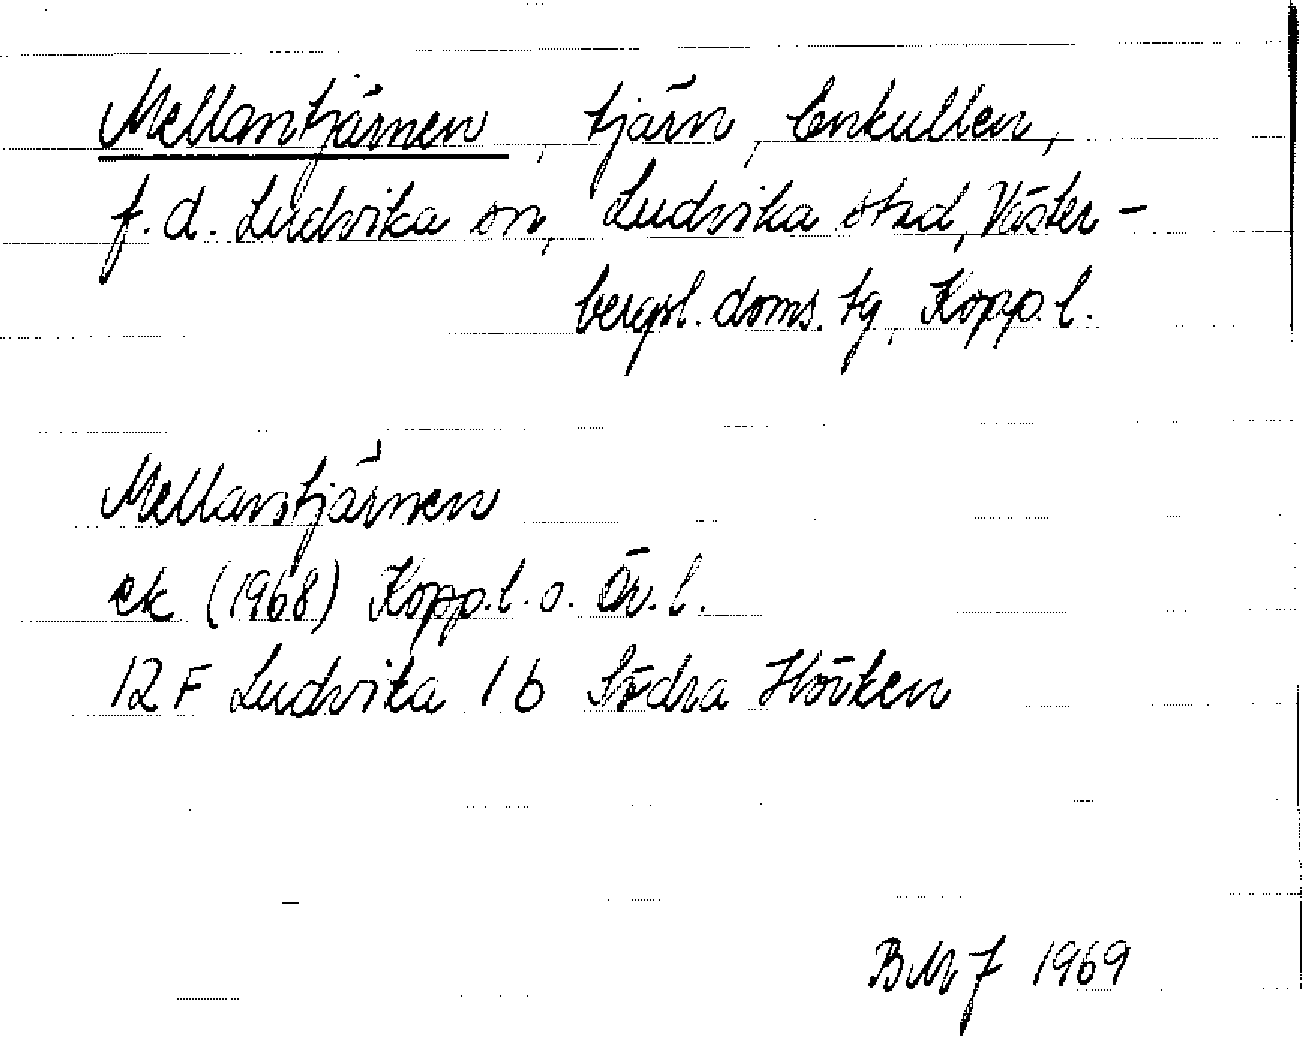 Mellantjärnen, tjärn, Enkullen,
f.d. Ludvika sn, Ludvika stad, Väster-
bergsl. doms. tg, Kopp. l.
Mellantjärnen
ek (1968) Kopp. l. o. Ör. l.
12 F Ludvika 1 b Södra Hörken
BMJ 1969